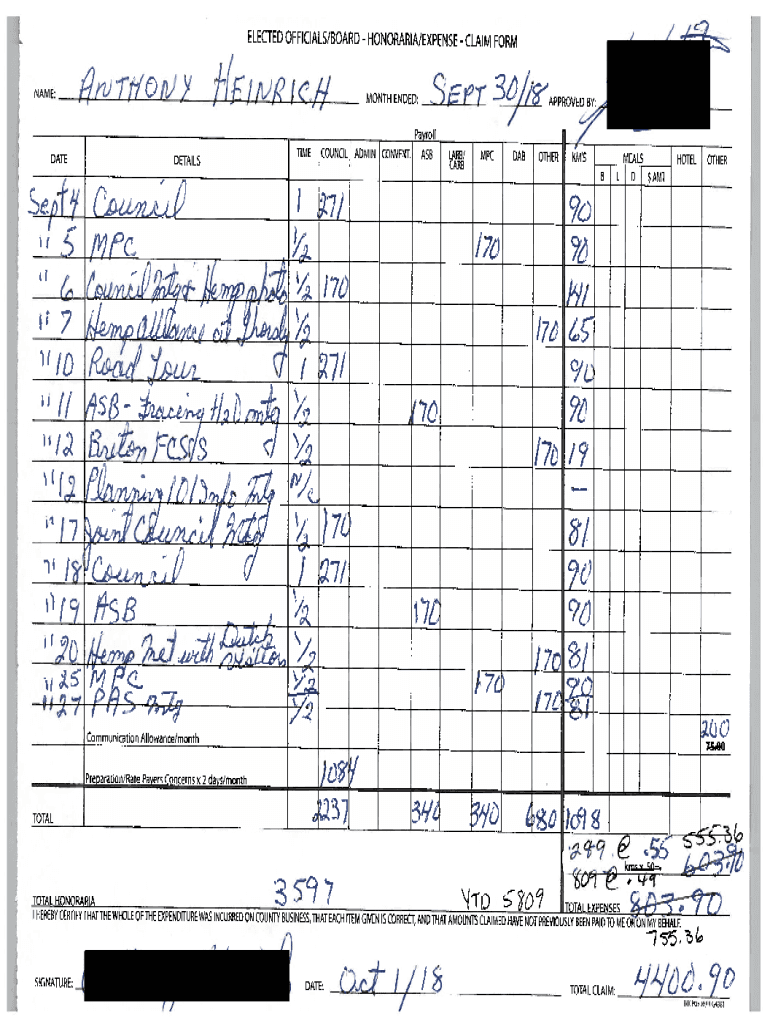 ELECTED OFFICIALS/BOARD - HONORARIA/EXPENSE - CLAIM FORM
NAME: ANTHONY HEINRICH MONTH ENDED: SEPT 30/18 APPROVED BY:
Payroll
DATE DETAILS TIME COUNCIL ADMIN CONVENT. ASB LARB/CARB MPC DAB OTHER KM'S MEALS HOTEL OTHER
B L D $ AMT
Sept 4 Council 1 271 90
" 5 MPC 1/2 170 90
" 6 Council Mtg + Hemp photo 1/2 170 141
" 7 Hemp Alliance at Thorsby 1/2 170 65
" 10 Road Tour 1 271 90
" 11 ASB - Tracing H2O mtg 1/2 170 90
" 12 Breton FCSS 1/2 170 19
" 12 Planning 101 Info Mtg N/C -
" 17 Joint Council Mtg 1/2 170 81
" 18 Council 1 271 90
" 19 ASB 1/2 170 90
" 20 Hemp Met with Dutch visitors 1/2 170 81
" 25 MPC 1/2 170 90
" 27 PAS mtg 1/2 170 81
Communication Allowance/month 200 75.00
Preparation/Rate Payers Concerns x 2 days/month 1084
TOTAL 2237 340 340 680 1098
289 @ .55 555.36
kms x .50= 603.90
809 @ .49
TOTAL HONORARIA 3597 YTD 5809 TOTAL EXPENSES 803.90
I HEREBY CERTIFY THAT THE WHOLE OF THE EXPENDITURE WAS INCURRED ON COUNTY BUSINESS, THAT EACH ITEM GIVEN IS CORRECT, AND THAT AMOUNTS CLAIMED HAVE NOT PREVIOUSLY BEEN PAID TO ME OR ON MY BEHALF.
755.36
SIGNATURE: DATE: Oct 1/18 TOTAL CLAIM: 4400.90